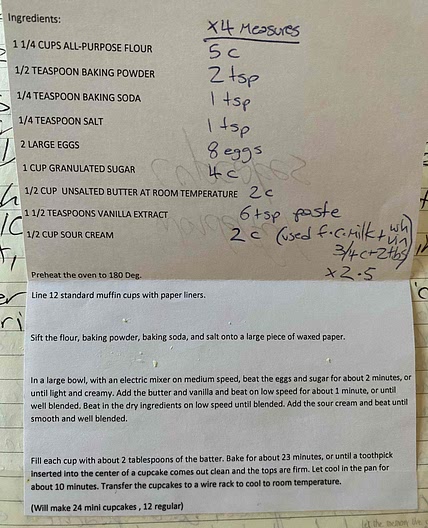 Ingredients:
X4 Measures
1 1/4 CUPS ALL-PURPOSE FLOUR 5 c
1/2 TEASPOON BAKING POWDER 2 tsp
1/4 TEASPOON BAKING SODA 1 tsp
1/4 TEASPOON SALT 1 tsp
2 LARGE EGGS 8 eggs
1 CUP GRANULATED SUGAR 4 c
1/2 CUP UNSALTED BUTTER AT ROOM TEMPERATURE 2 c
1 1/2 TEASPOONS VANILLA EXTRACT 6 tsp paste
1/2 CUP SOUR CREAM 2 c (used f.c. milk + wh vin
3/4 c + 2 tbs)
x 2.5
Preheat the oven to 180 Deg.
Line 12 standard muffin cups with paper liners.
Sift the flour, baking powder, baking soda, and salt onto a large piece of waxed paper.
In a large bowl, with an electric mixer on medium speed, beat the eggs and sugar for about 2 minutes, or
until light and creamy. Add the butter and vanilla and beat on low speed for about 1 minute, or until
well blended. Beat in the dry ingredients on low speed until blended. Add the sour cream and beat until
smooth and well blended.
Fill each cup with about 2 tablespoons of the batter. Bake for about 23 minutes, or until a toothpick
inserted into the center of a cupcake comes out clean and the tops are firm. Let cool in the pan for
about 10 minutes. Transfer the cupcakes to a wire rack to cool to room temperature.
(Will make 24 mini cupcakes , 12 regular)